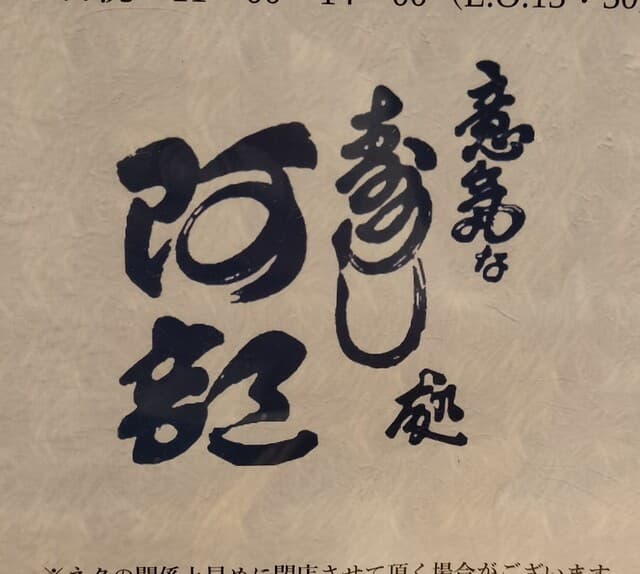 11:00~14:00 (L.O.13:30
意気な
寿し
処
阿部
※ネタの関係上早めに閉店させて頂く場合がございます